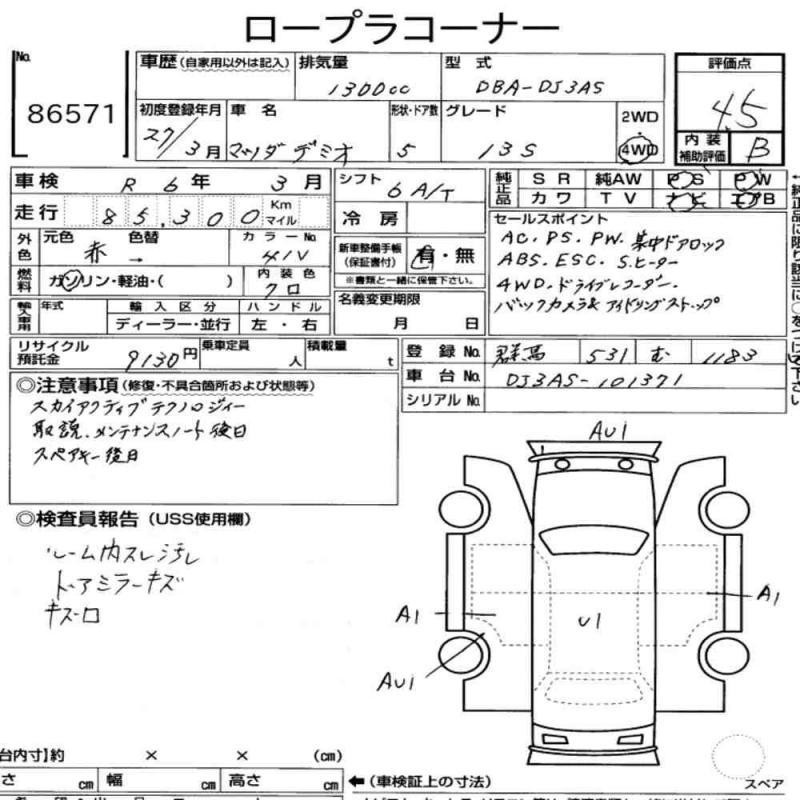 ロープラコーナー
No.
86571
車歴(自家用以外は記入)
排気量
1300cc
型式
DBA-DJ3AS
評価点
4.5
初度登録年月
27/3月
車名
マツダ デミオ
形状・ドア数
5
グレード
13S
2WD
4WD
内装
補助評価
B
車検
R 6年 3月
シフト
6 A/T
純正品
SR 純AW PS PW
カワ TV ナビ エアB
走行
85,300
Km
マイル
冷房
セールスポイント
AC. PS. PW. 集中ドアロック
ABS. ESC. S.ヒーター
4WD. ドライブレコーダー.
バックカメラ& アイドリングストップ
外色
元色
赤
色替
→
カラーNo.
41V
新車整備手帳
(保証書付)
有・無
※書類と一緒に保管下さい。
燃料
ガソリン・軽油・( )
内装色
クロ
名義変更期限
月 日
輸入車用
年式
輸入区分
ディーラー・並行
ハンドル
左・右
リサイクル
預託金
9130円
乗車定員
人
積載量
t
登録No.
群馬 531 む 1183
車台No.
DJ3AS-101371
シリアルNo.
◎注意事項(修復・不具合箇所および状態等)
スカイアクティブテクノロジィー
取説、メンテナンスノート後日
スペアキー後日
◎検査員報告(USS使用欄)
ルーム内スレ汚レ
ドアミラーキズ
キズ口
AU1
A1
A1
U1
AU1
台内寸】約 × × (cm)
さ cm 幅 cm 高さ cm
←(車検証上の寸法)
スペア